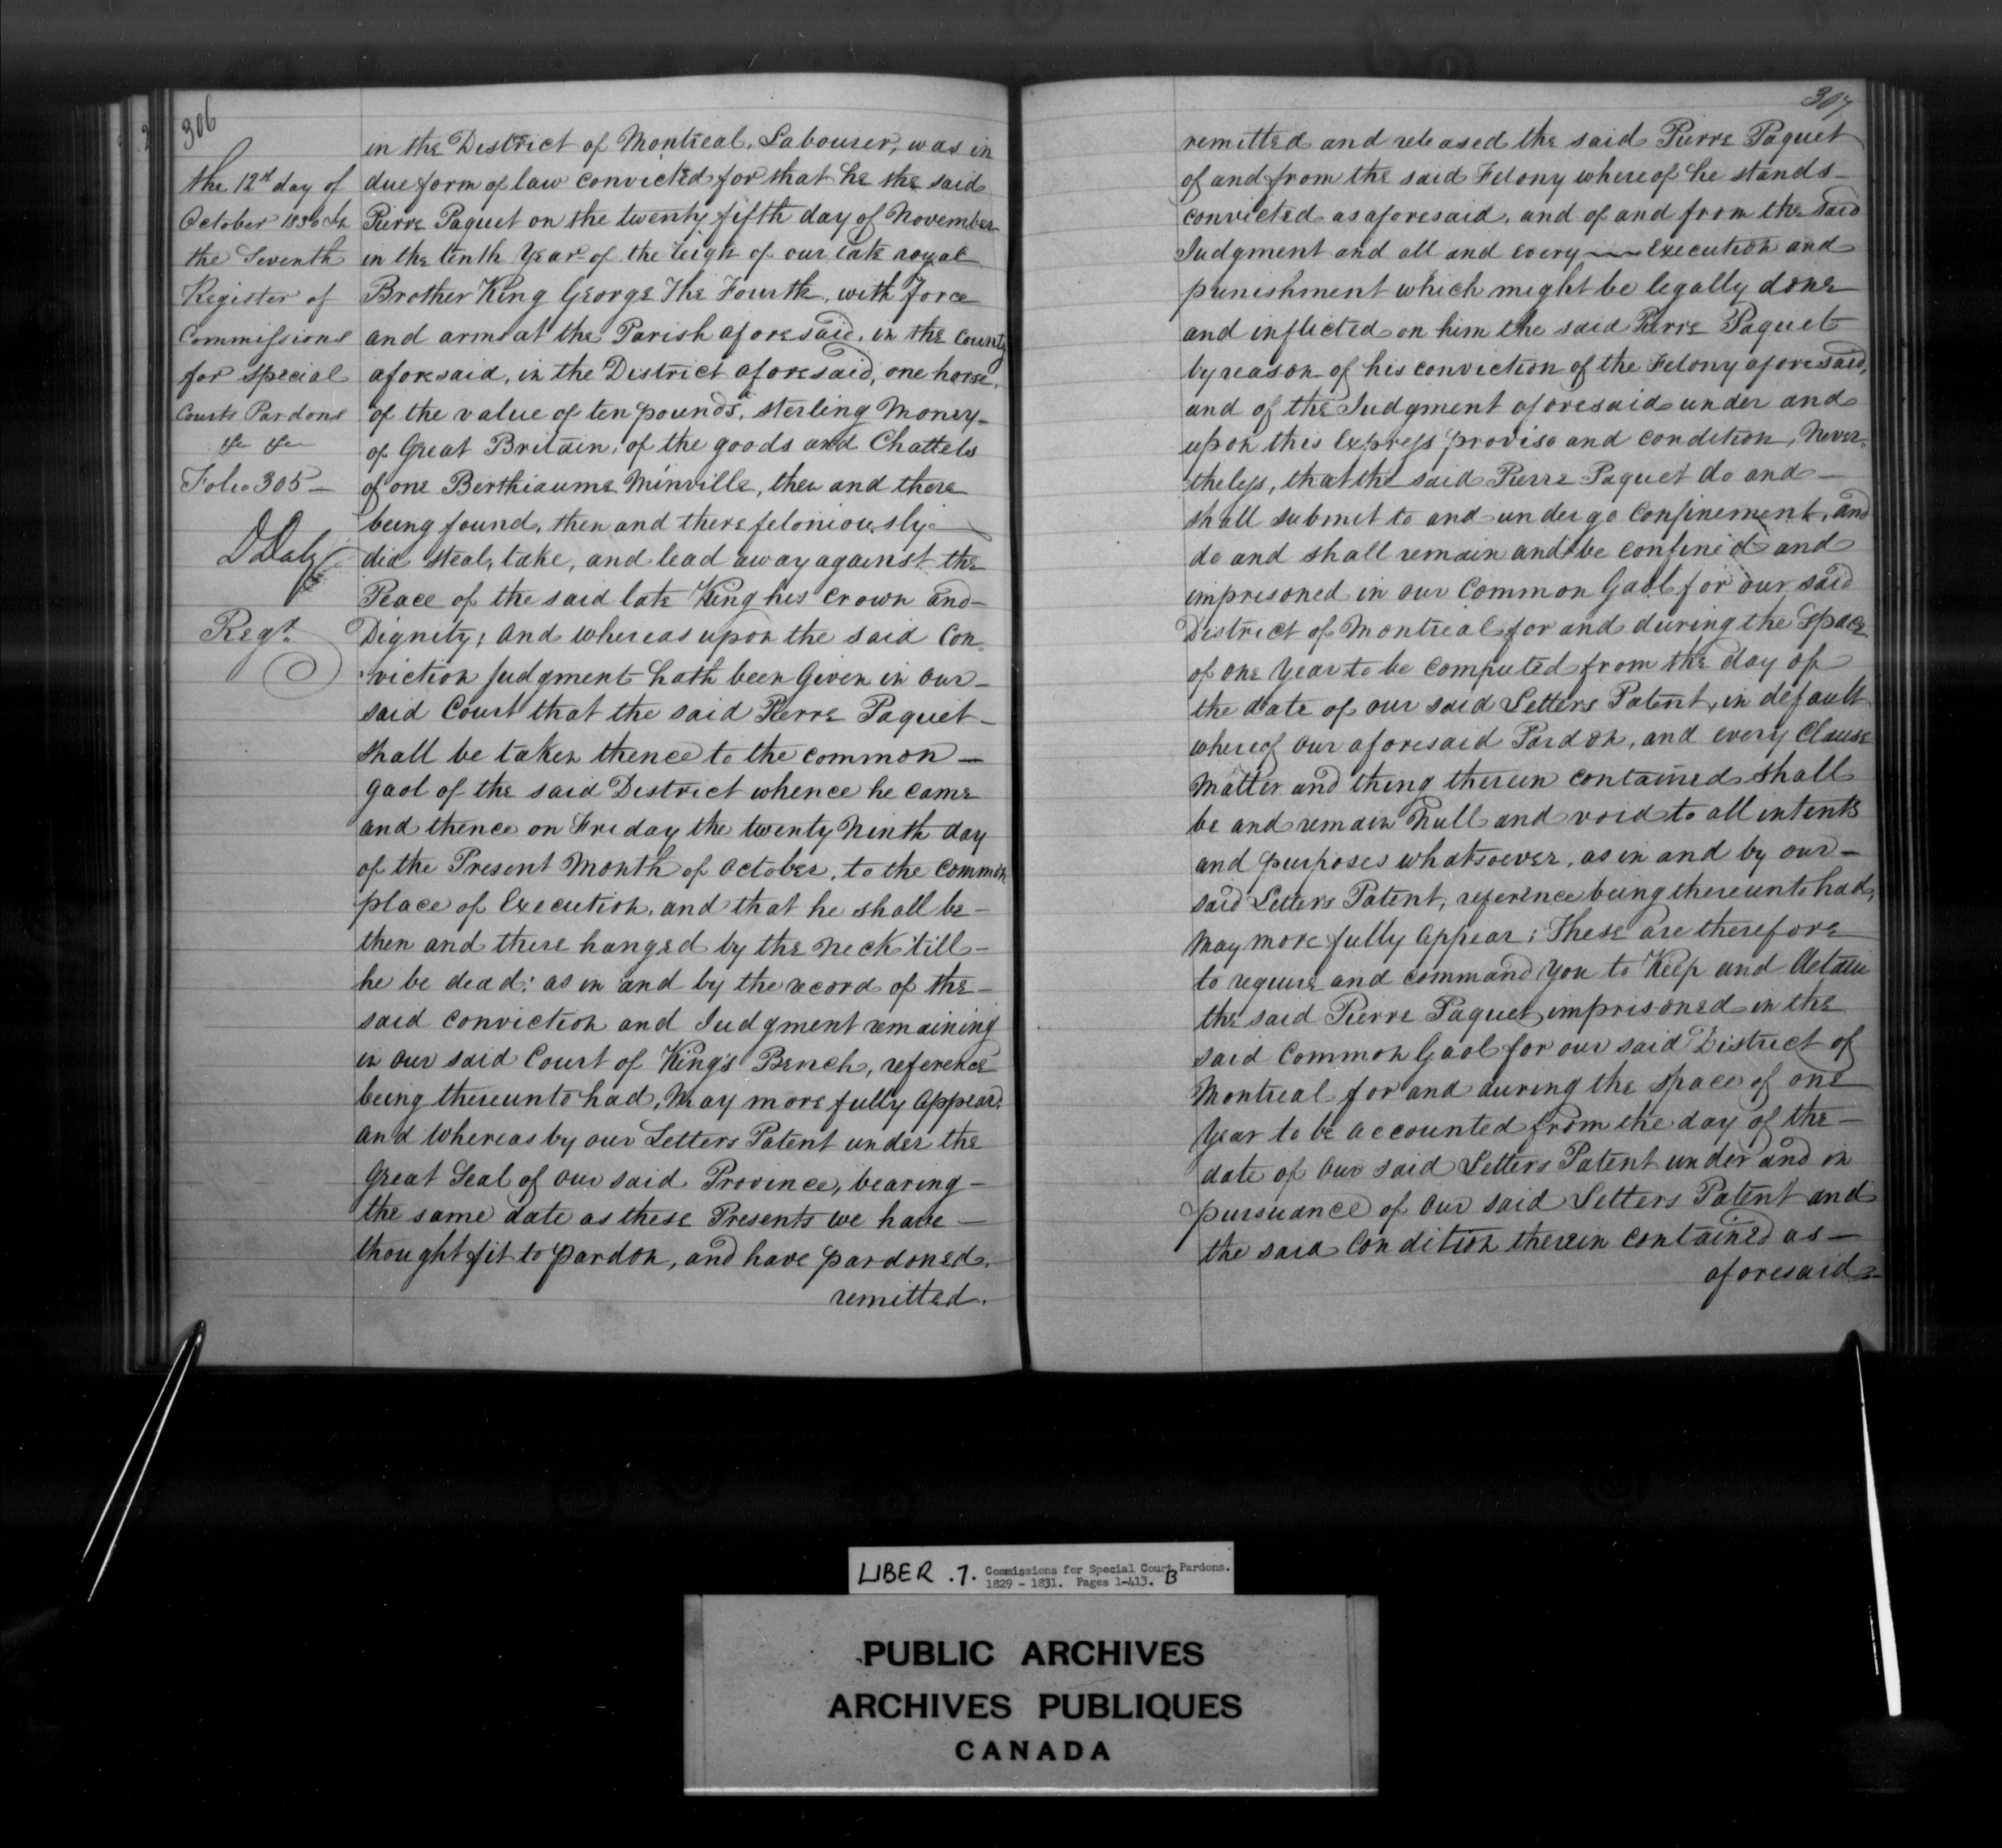 306
the 12th day of
October 1830 In
the Seventh
Register of
Commissions
for special
Courts Pardons
&c &c
Folio 305 —
D Daly
Regr.
in the District of Montreal, Labourer, was in
due form of law convicted for that he the said
Pierre Paquet on the twenty fifth day of November
in the tenth Year of the reign of our late royal
Brother King George The Fourth, with force
and arms at the Parish aforesaid, in the County
aforesaid, in the District aforesaid, one horse,
of the value of ten pounds, sterling Money
of Great Britain, of the goods and Chattels
of one Berthiaume Minville, then and there
being found, then and there feloniously
did steal, take, and lead away against the
Peace of the said late King his Crown and —
Dignity; And whereas upon the said Con
:viction Judgment hath been Given in Our —
said Court that the said Pierre Paquet —
shall be taken thence to the common —
gaol of the said District whence he came
and thence on Friday the twenty Ninth day
of the Present Month of October, to the Common
place of Execution, and that he shall be —
then and there hanged by the Neck till —
he be dead: as in and by the record of the —
said conviction and Judgment remaining
in our said Court of King's Bench, reference
being thereunto had, May more fully Appear.
And Whereas by our Letters Patent under the
Great Seal of Our said Province, bearing —
the same date as these Presents we have —
thought fit to pardon, and have pardoned,
remitted.
307
remitted and released the said Pierre Paquet
of and from the said Felony whereof he stands —
convicted as aforesaid, and of and from the said
Judgment and all and every ~~~ Execution and
punishment which might be legally done
and inflicted on him the said Pierre Paquet
by reason of his conviction of the Felony aforesaid,
and of the Judgment aforesaid under and
upon this Express proviso and condition, Never-
theless, that the said Pierre Paquet do and —
shall submit to and undergo Confinement, and
do and shall remain and be confined and
imprisoned in our Common Gaol for our said
District of Montreal for and during the Space
of one Year to be computed from the day of
the date of our said Letters Patent, in default
whereof Our aforesaid Pardon, and every Clause
Matter and thing therein contained shall
be and remain Null and void to all intents
and purposes whatsoever, as in and by our —
said Letters Patent, reference being thereunto had,
May more fully Appear; These are therefore
to require and command you to Keep and detain
the said Pierre Paquet imprisoned in the
said Common Gaol for our said District of
Montreal for and during the space of one
Year to be accounted from the day of the —
date of Our said Letters Patent under and in
pursuance of Our said Letters Patent and
the said Condition therein contained as —
aforesaid
LIBER .7. Commissions for Special Court Pardons.
1829 - 1831. Pages 1-413. B
PUBLIC ARCHIVES
ARCHIVES PUBLIQUES
CANADA